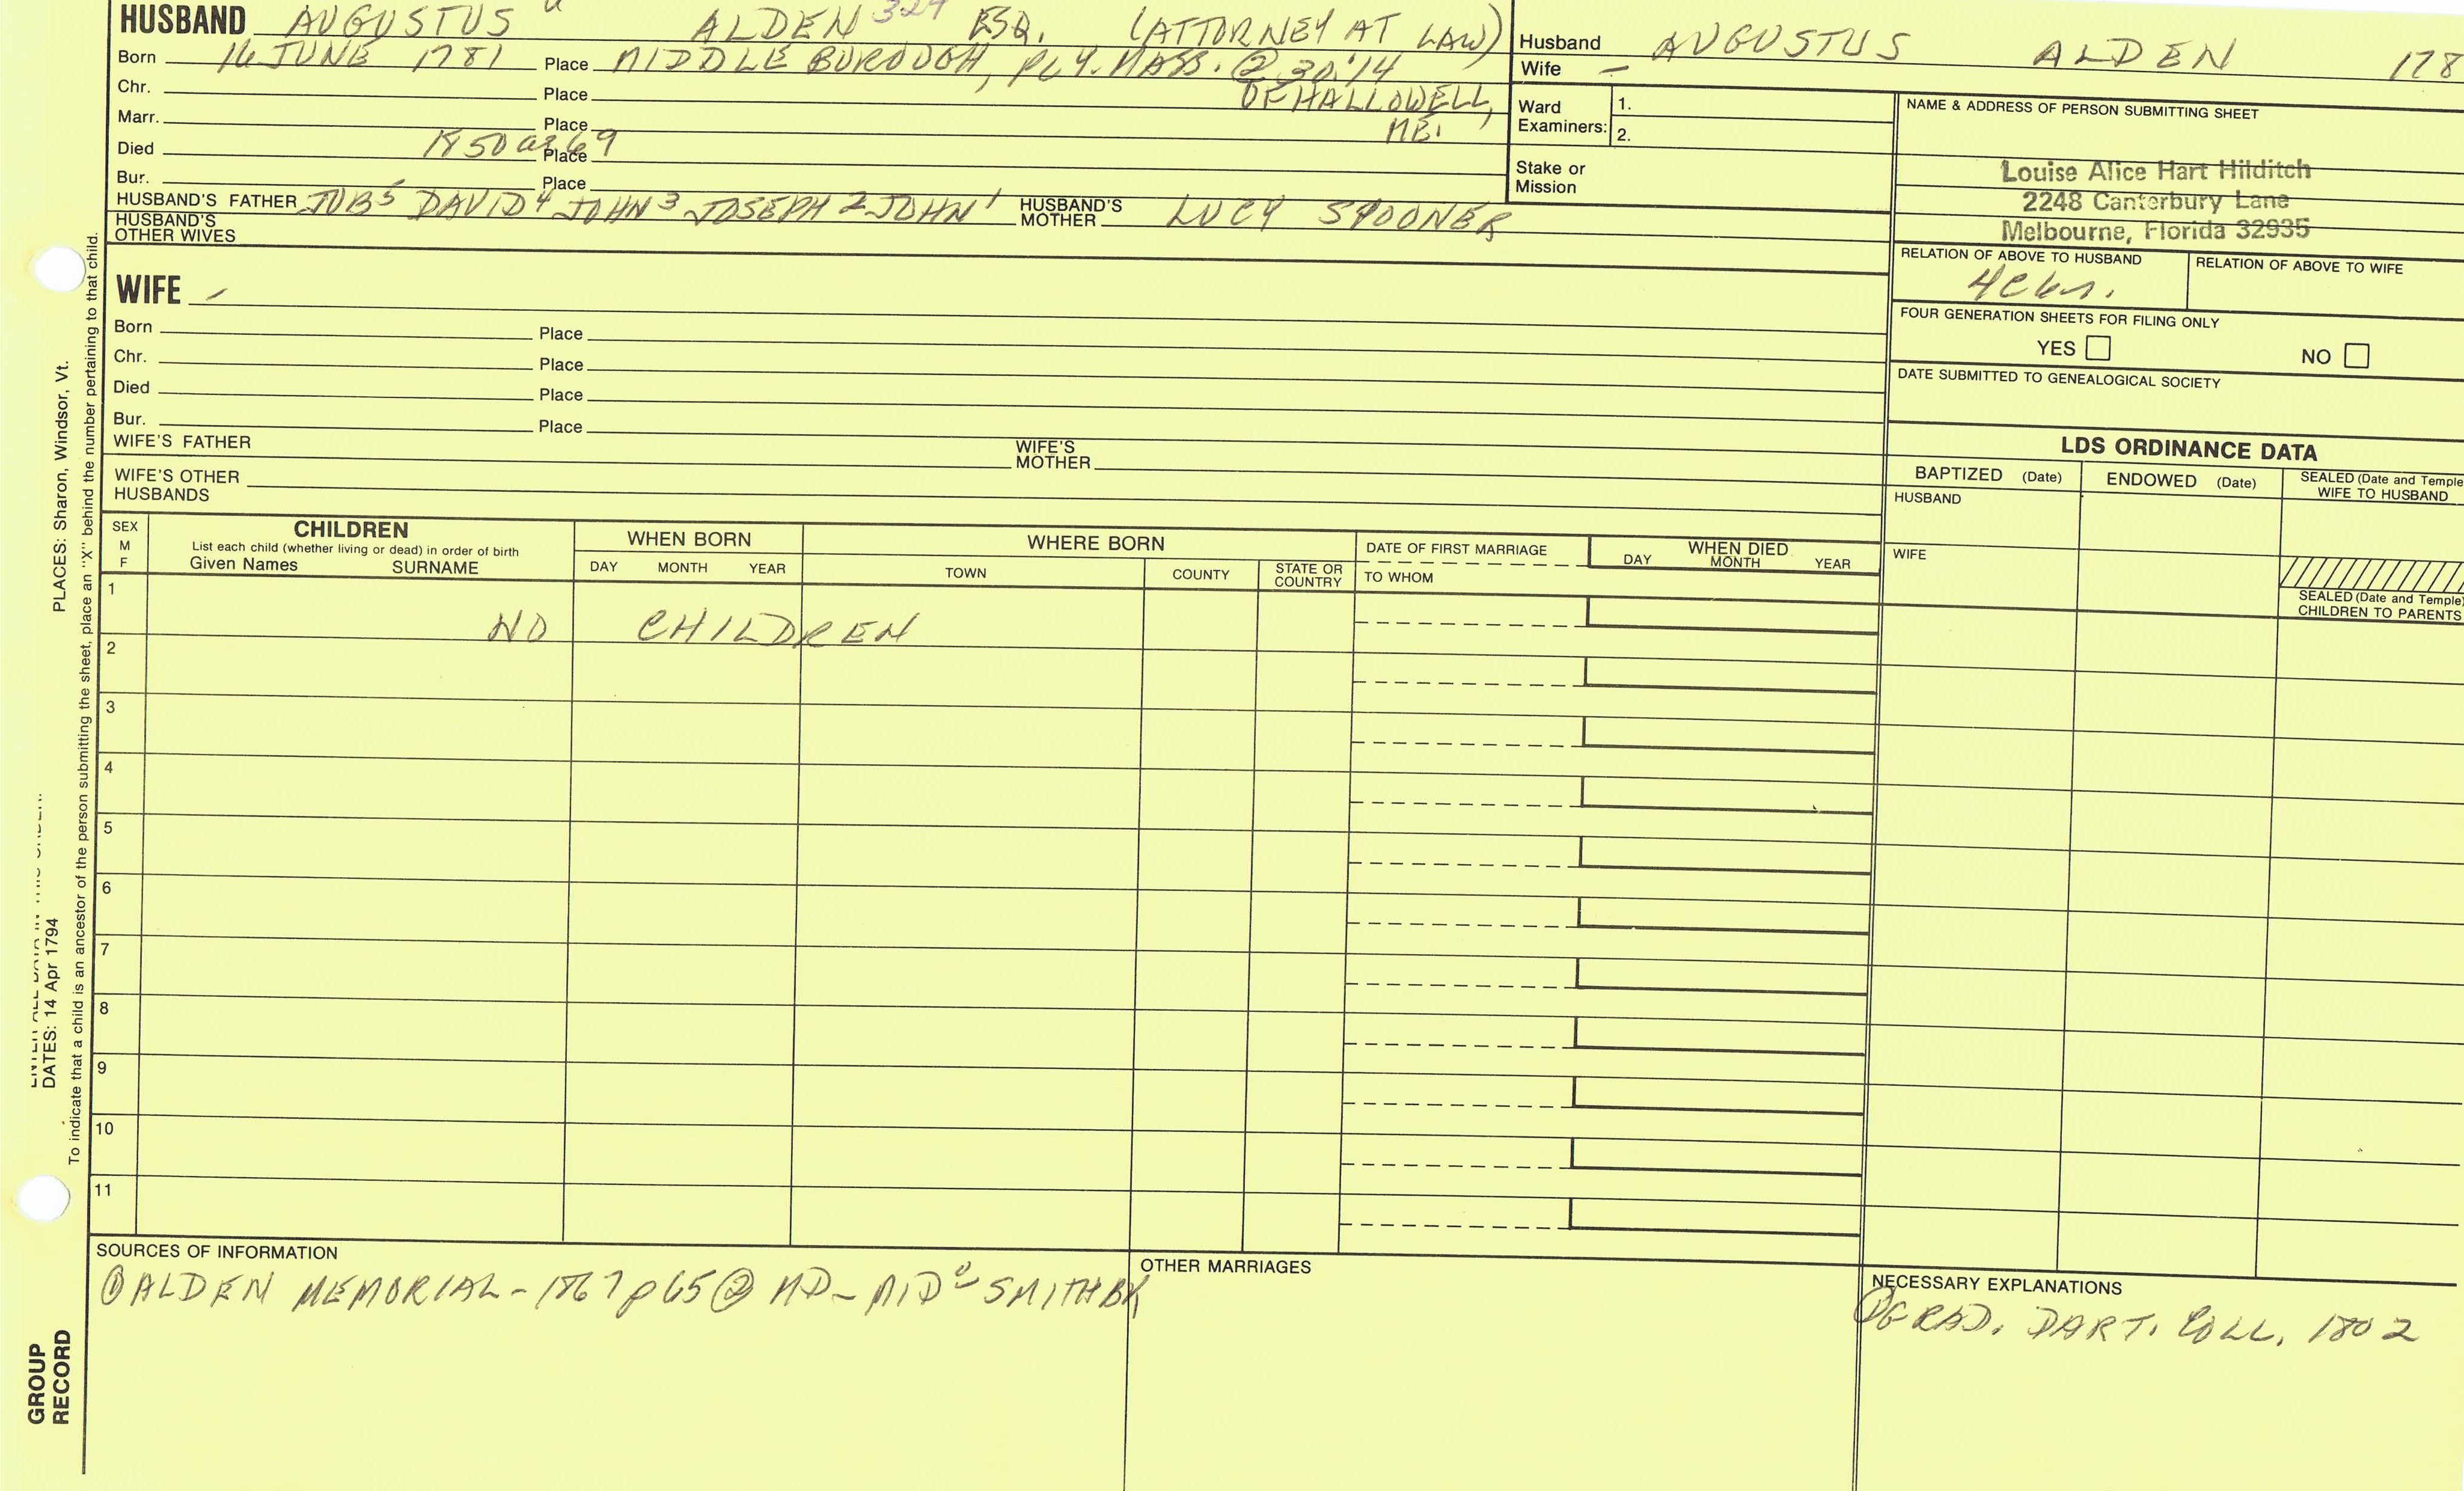 HUSBAND AUGUSTUS ALDEN 324 ESQ. (ATTORNEY AT LAW)
Born 16 JUNE 1781 Place MIDDLE BOROUGH, PLY. MASS. @ 30:14
Chr. Place OF HALLOWELL,
Marr. Place ME.
Died 1850 ae 69 Place
Bur. Place
HUSBAND'S FATHER JOB5 DAVID4 JOHN3 JOSEPH2 JOHN1 HUSBAND'S MOTHER LUCY SPOONER
HUSBAND'S OTHER WIVES
Husband AUGUSTUS ALDEN 178
Wife –
Ward Examiners: 1.
2.
Stake or Mission
NAME & ADDRESS OF PERSON SUBMITTING SHEET
Louise Alice Hart Hilditch
2248 Canterbury Lane
Melbourne, Florida 32935
RELATION OF ABOVE TO HUSBAND RELATION OF ABOVE TO WIFE
FOUR GENERATION SHEETS FOR FILING ONLY
YES NO
DATE SUBMITTED TO GENEALOGICAL SOCIETY
WIFE –
Born Place
Chr. Place
Died Place
Bur. Place
WIFE'S FATHER WIFE'S MOTHER
WIFE'S OTHER HUSBANDS
LDS ORDINANCE DATA
BAPTIZED (Date) ENDOWED (Date) SEALED (Date and Temple
WIFE TO HUSBAND
HUSBAND
WIFE
SEALED (Date and Temple)
CHILDREN TO PARENTS
SEX
M
F
CHILDREN
List each child (whether living or dead) in order of birth
Given Names SURNAME
WHEN BORN
DAY MONTH YEAR
WHERE BORN
TOWN COUNTY STATE OR COUNTRY
DATE OF FIRST MARRIAGE
TO WHOM
WHEN DIED
DAY MONTH YEAR
1
NO CHILDREN
2
3
4
5
6
7
8
9
10
11
SOURCES OF INFORMATION
① ALDEN MEMORIAL - 1867 p65 ② MD - MIDo SMITH BK
OTHER MARRIAGES
NECESSARY EXPLANATIONS
① GRAD. DART. COLL. 1802
PLACES: Sharon, Windsor, Vt.
DATES: 14 Apr 1794
To indicate that a child is an ancestor of the person submitting the sheet, place an "X" behind the number pertaining to that child.
GROUP
RECORD